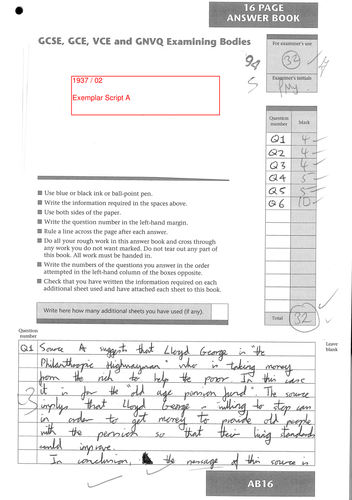 16 PAGE
ANSWER BOOK
GCSE, GCE, VCE and GNVQ Examining Bodies
For examiner's use
32
Examiner's initials
1937 / 02
Exemplar Script A
Question number
Mark
Q1 4
Q2 4
Q3 4
Q4 5
Q5 5
Q6 10
Use blue or black ink or ball-point pen.
Write the information required in the spaces above.
Use both sides of the paper.
Write the question number in the left-hand margin.
Rule a line across the page after each answer.
Do all your rough work in this answer book and cross through
any work you do not want marked. Do not tear out any part of
this book. All work must be handed in.
Write the numbers of the questions you answer in the order
attempted in the left-hand column of the boxes opposite.
Check that you have written the information required on each
additional sheet used and have attached each sheet to this book.
Write here how many additional sheets you have used (if any).
Total
32
Question
number
Leave
blank
Q1 Source A suggests that Lloyd George is "the
Philanthropic Highwayman" who is taking money
from the rich to help the poor. In this case
it is for the "old age pension fund". The source
implys that Lloyd George is willing to stop cars
in order to get money to provide old people
with the pension so that their living standards
could improve.
In conclusion, the message of this source is
AB16